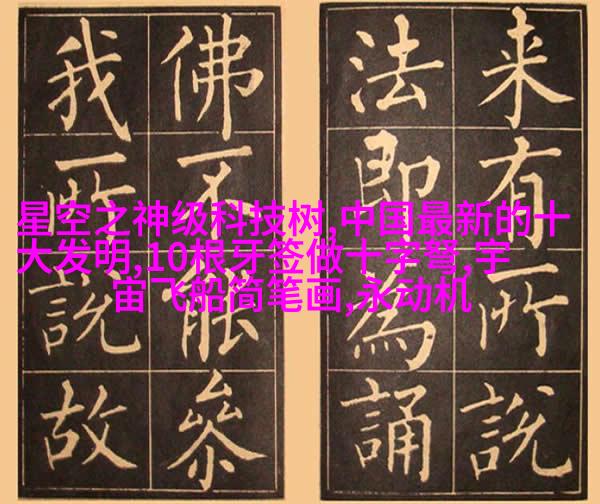 来有所說
法即為誦
佛不能參
我所說故
星空之神级科技树,中国最新的十
大发明,10根牙签做十字弩,宇
宙飞船简笔画,永动机